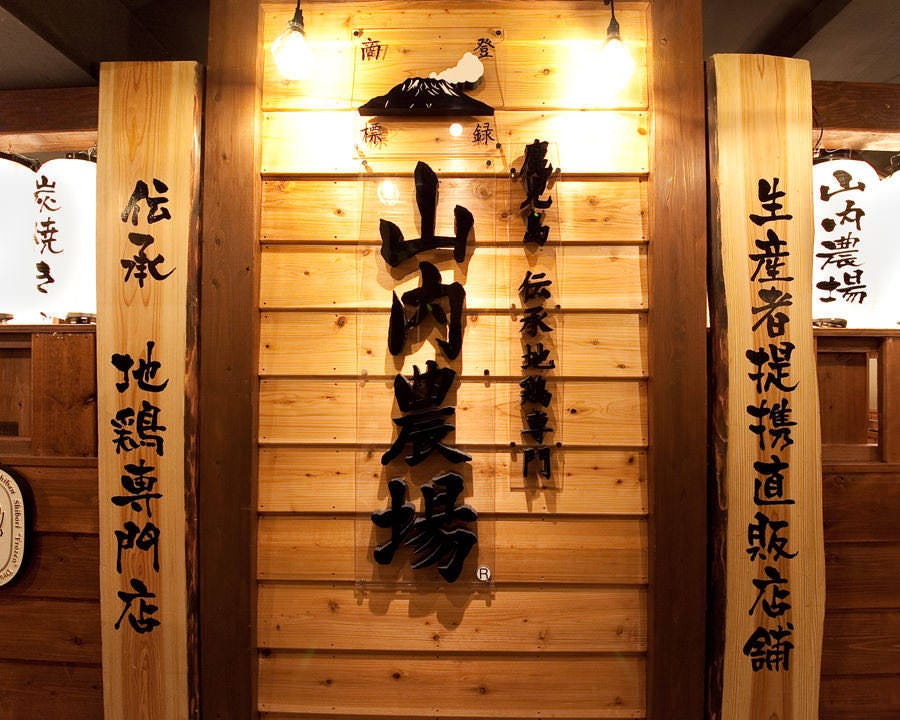 登録
商標
鹿児島 伝承地鶏専門
山内農場
®
生産者提携直販店舗
伝承 地鶏専門店
山内農場
炭焼き
Shibori "Frozen"